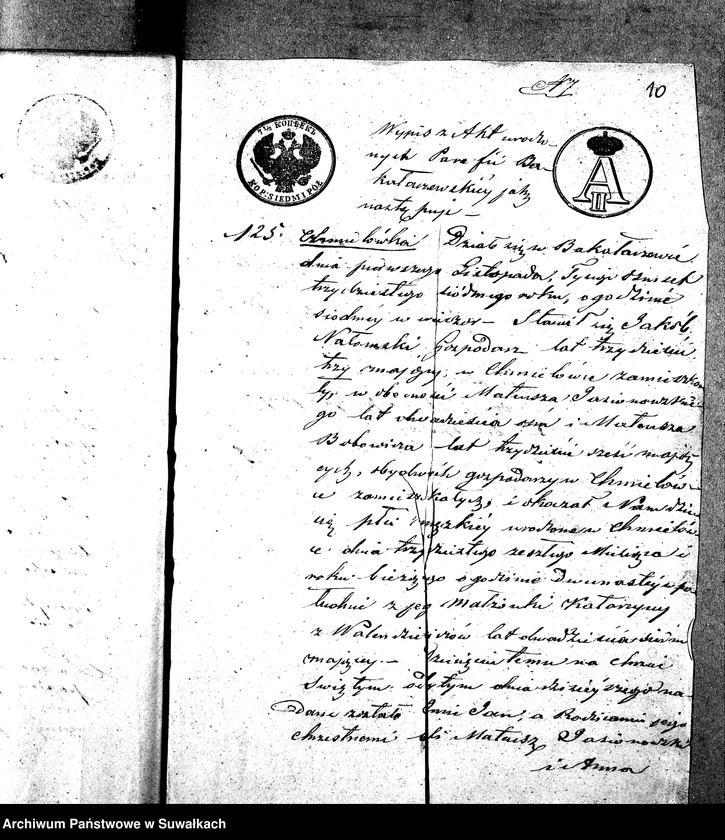 10
7½ КОПѢЕКЪ
KOP: SIEDM I PÓŁ
A II
Wypis z Akt urodzo-
nych Parafii Ba-
kałarzewskiéy jak
następuje –
125. Chmielówka Działo się w Bakałarzewie
dnia pierwszego Listopada, Tysiąc ośmset
trzydziestego siódmego roku, o godzinie
siodméy w wieczor – Stawił się Jakób
Gospodarz lat trzydzieści
trzy maiący, w Chmielówce zamieszka
ły, w obecności Mateusza Jasionowskie
go lat dwadzieścia ośm i Mateusza
lat trzydzieści sześć maią
cych, obydwóch gospodarzy w Chmielów-
ce zamieszkałych, i okazał Nam dzie
cię płci męzkiéy urodzone w Chmielów
ce dnia trzydziestego zeszłego Miesiąca i
roku bieżącego o godzinie Dwunastéy w po
łudnie z jego Małżonki Katarzyny
z lat dwadzieścia
maiącéy – Dziecięciu temu na chrzcie
Świętym, odbytym dnia dzisieyszego na-
dane zostało Imie Jan, a Rodzicami jego
chrzestnemi byli Mateusz Jasionowski
i Anna
Archiwum Państwowe w Suwałkach